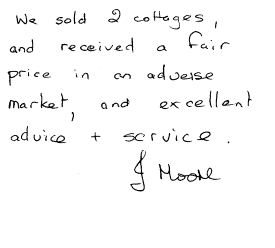 We sold 2 cottages,
and received a fair
price in an adverse
market, and excellent
advice + service.
J Moore